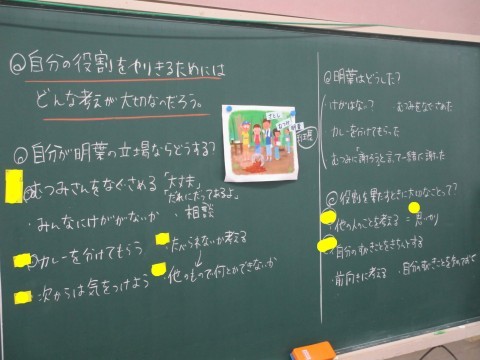 ◎自分の役割をやりきるためには
どんな考えが大切なのだろう。
◎自分が明葉の立場ならどうする?
むつみさんをなぐさめる「大丈夫」
「だれにだってあるよ」
・みんなにけががないか ・相談
カレーを分けてもらう
・たべられないか考える
↓
・次からは気をつけよう
・他のもので何とかできないか
さとし
むつみ
明葉
◎明葉はどうした?
けがはない? むつみをなぐさめた
カレーを分けてもらった
むつみに「謝ろう」と言って一緒に謝った
◎役割を果たすときに大切なことって?
・他の人のことを考える
・自分のすべきことをきちんとする
・前向きに考える